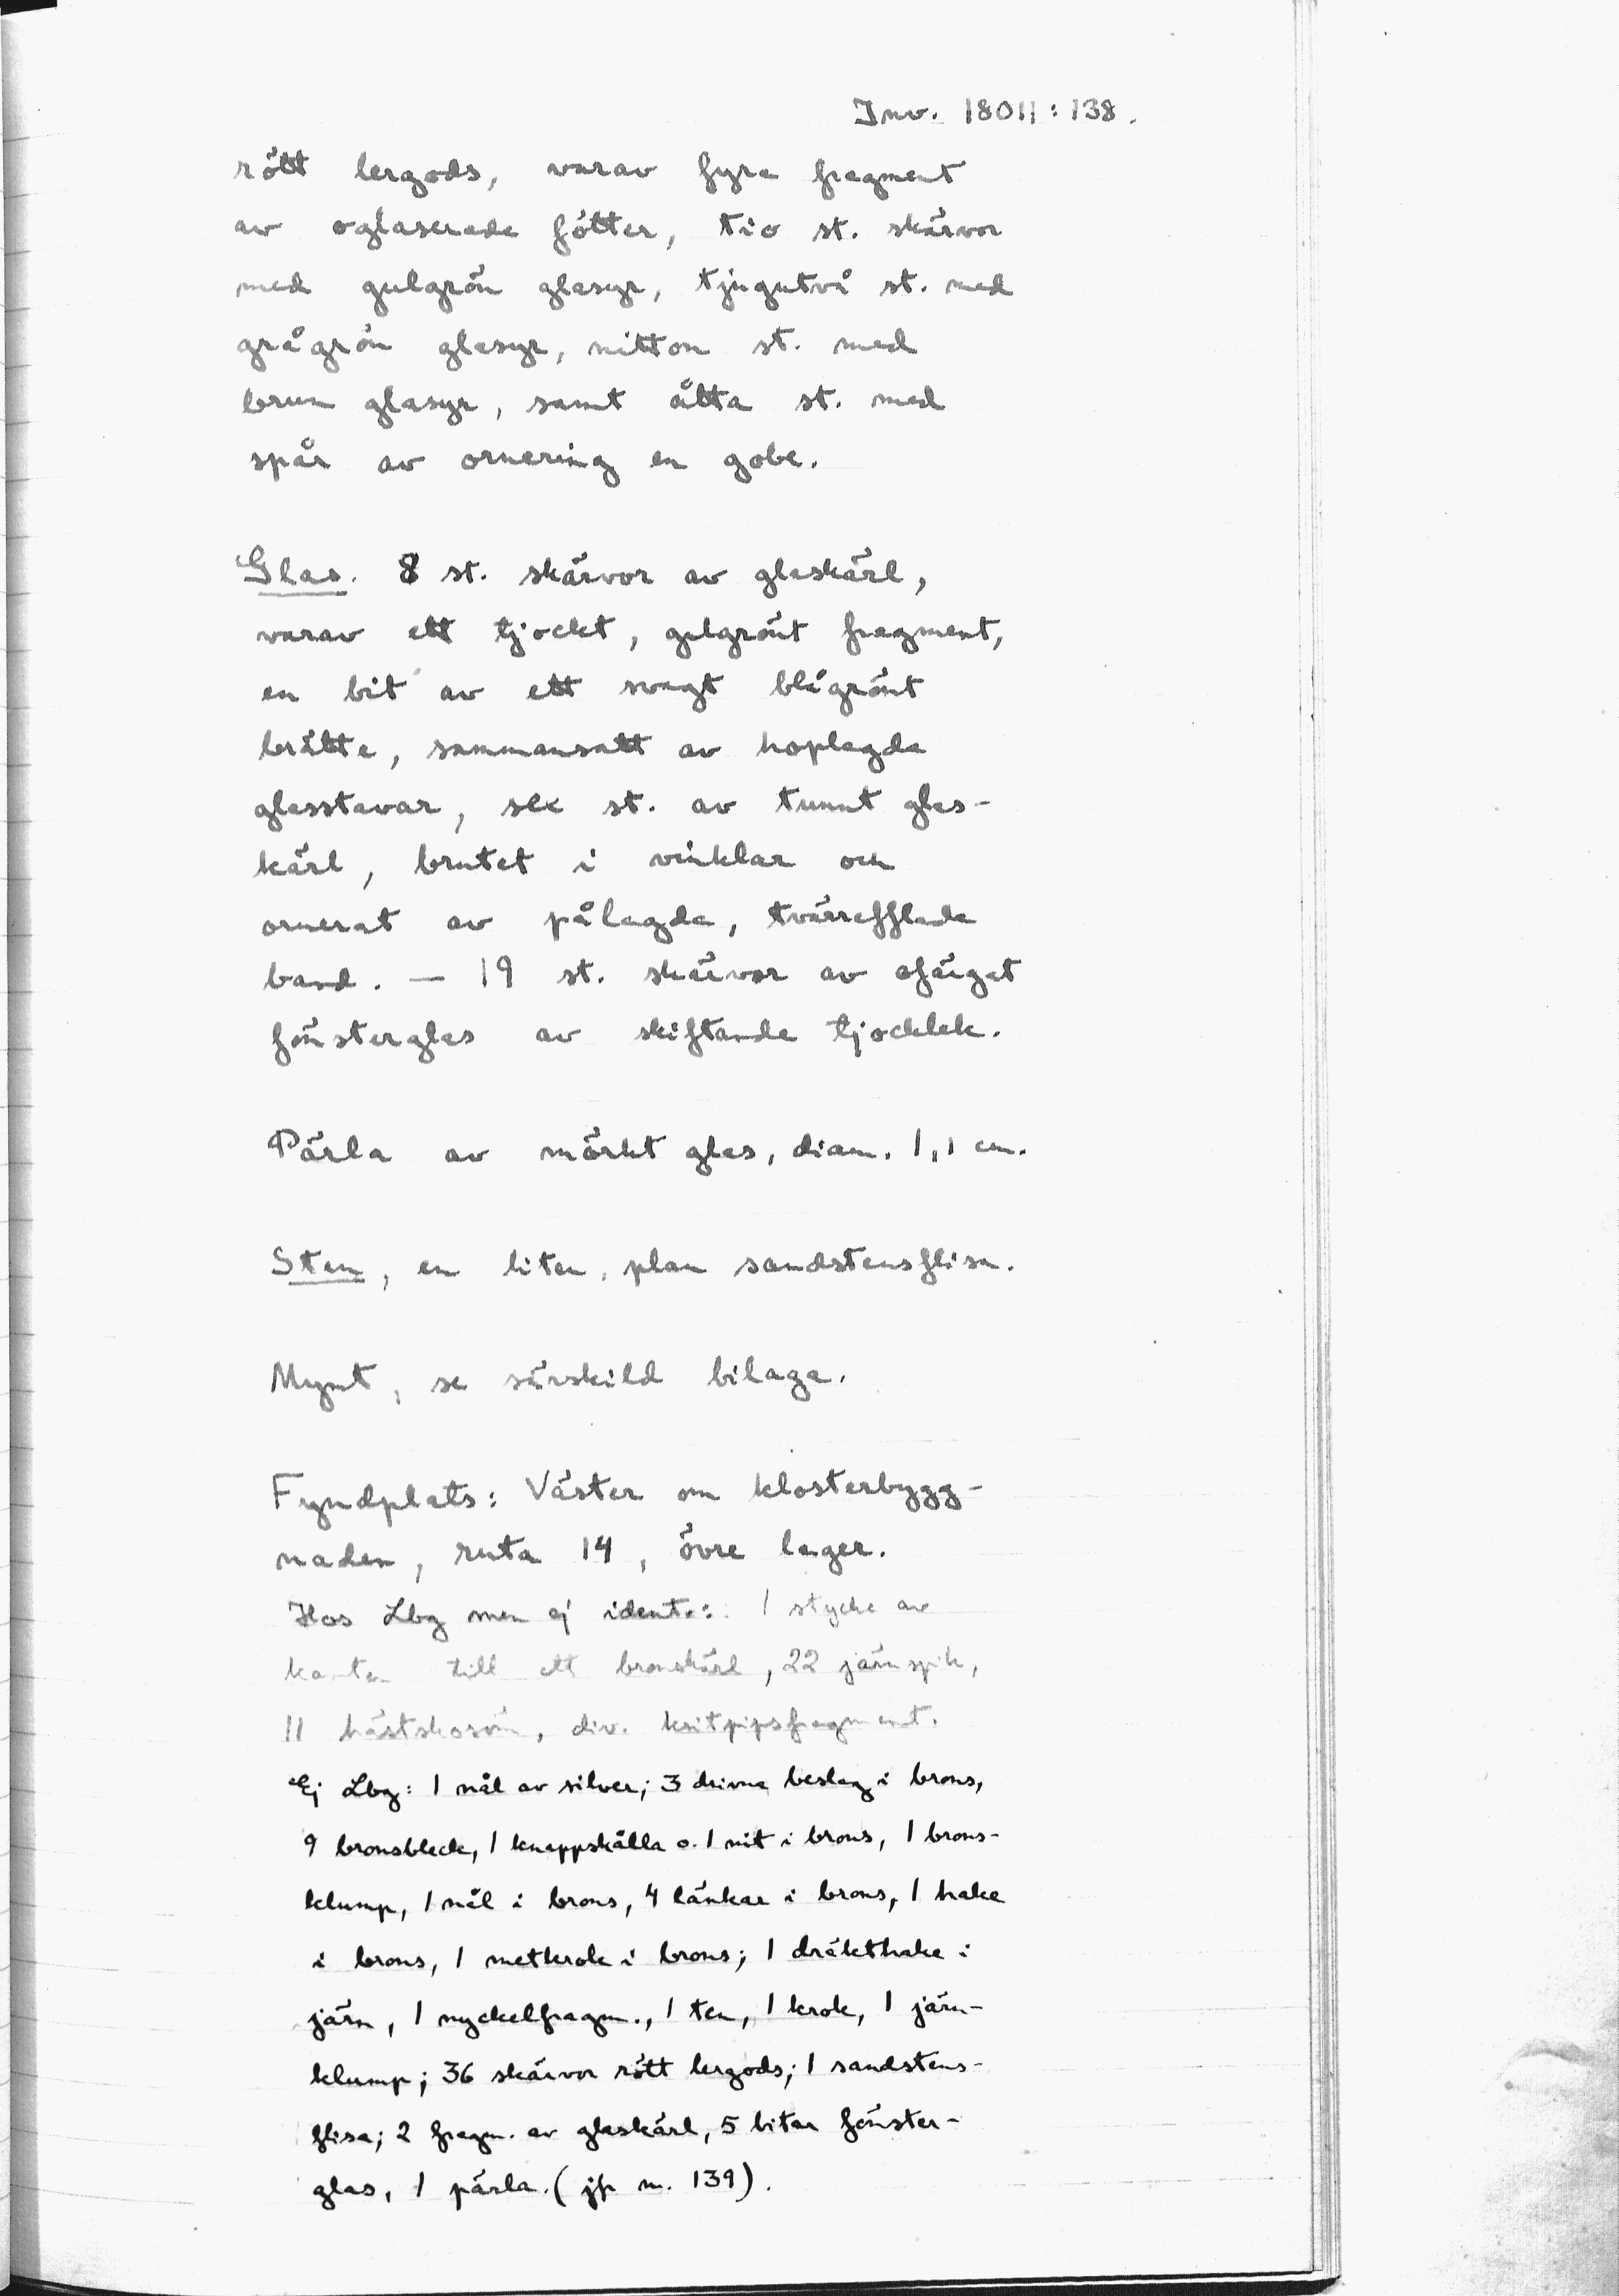 Inv. 18011:138.
rött lergods, varav fyra fragment
av oglaserade fötter, tio st. skärvor
med gulgrön glasyr, tjugutvå st. med
grågrön glasyr, nitton st. med
brun glasyr, samt åtta st. med
spår av ornering en gobe.
Glas. 8 st. skärvor av glaskärl,
varav ett tjockt, gulgrönt fragment,
en bit av ett svagt blågrönt
brätte, sammansatt av hoplagda
glasstavar, sex st. av tunnt glas-
kärl, brutet i vinklar och
ornerat av pålagda, tvärrefflade
band. — 19 st. skärvor av ofärgat
fönsterglas av skiftande tjocklek.
Pärla av mörkt glas, diam. 1,1 cm.
Sten, en liten, plan sandstensflisa.
Mynt, se särskild bilaga.
Fyndplats: Väster om klosterbygg-
naden, ruta 14, övre lager.
Hos Lbg men ej ident.: 1 stycke av
kanten till ett bronskärl, 22 järnspik,
11 hästskosöm, div. kritpipsfragment.
Ej Lbg: 1 nål av silver; 3 drivna beslag i brons,
9 bronsbleck, 1 knappskålla o. 1 nit i brons, 1 brons-
klump, 1 nål i brons, 4 länkar i brons, 1 hake
i brons, 1 metkrok i brons; 1 dräkthake i
järn, 1 nyckelfragm., 1 ten, 1 krok, 1 järn-
klump; 36 skärvor rött lergods; 1 sandstens-
flisa; 2 fragm. av glaskärl, 5 bitar fönster-
glas, 1 pärla. (jfr n. 139).